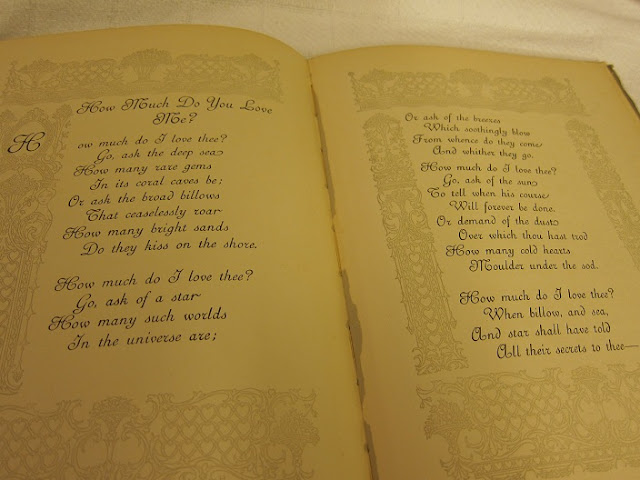 How Much Do You Love
Me?
How much do I love thee?
Go, ask the deep sea
How many rare gems
In its coral caves be;
Or ask the broad billows
That ceaselessly roar
How many bright sands
Do they kiss on the shore.
How much do I love thee?
Go, ask of a star
How many such worlds
In the universe are;
Or ask of the breezes
Which soothingly blow
From whence do they come
And whither they go.
How much do I love thee?
Go, ask of the sun
To tell when his course
Will forever be done.
Or demand of the dust
Over which thou hast trod
How many cold hearts
Moulder under the sod.
How much do I love thee?
When billow, and sea,
And star shall have told
All their secrets to thee—